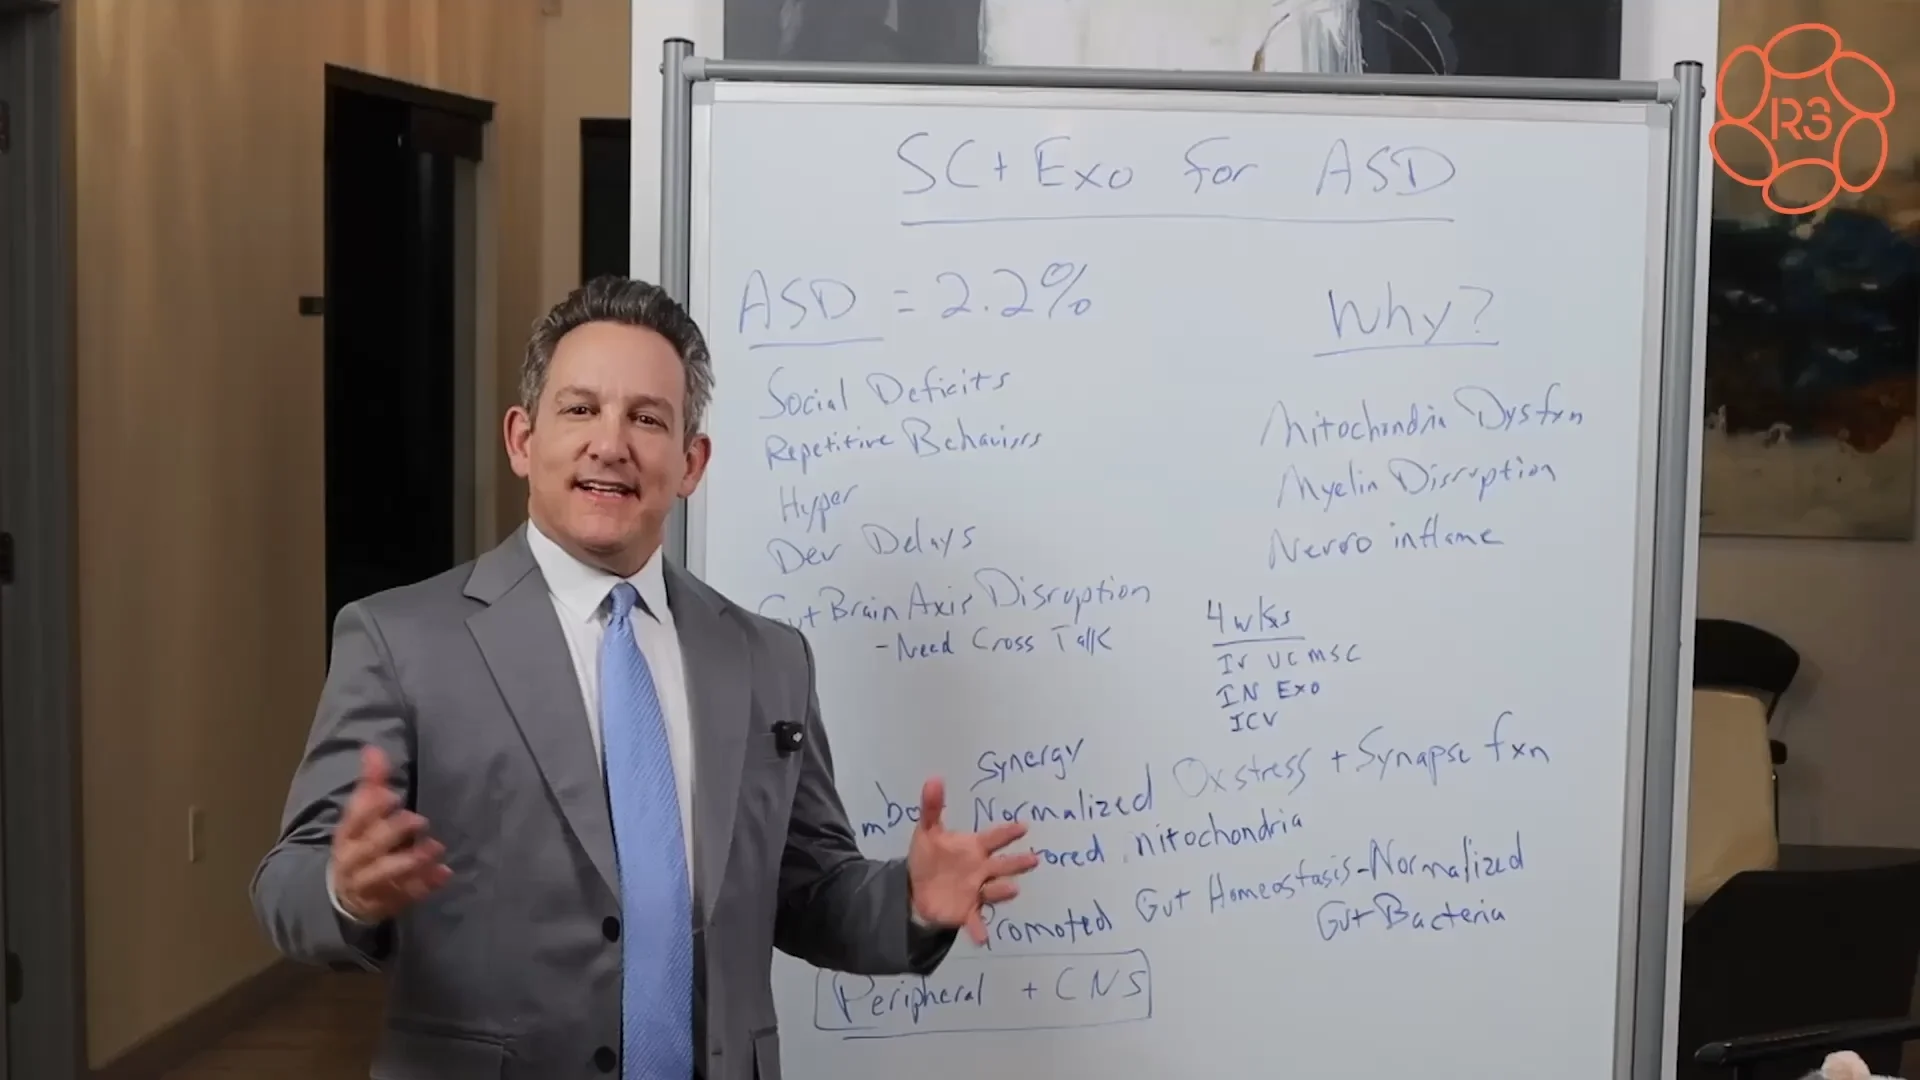 R3
SC + Exo for ASD
ASD = 2.2%
Social Deficits
Repetitive Behaviors
Hyper
Dev Delays
Gut Brain Axis Disruption
- Need Cross Talk
Why?
Mitochondria Dysfxn
Myelin Disruption
Neuro inflame
4 wks
IV UCMSC
IN Exo
ICV
Synergy
Normalized Oxstress + Synapse fxn
mitochondria
Promoted Gut Homeostasis - Normalized
Gut Bacteria
Peripheral + CNS